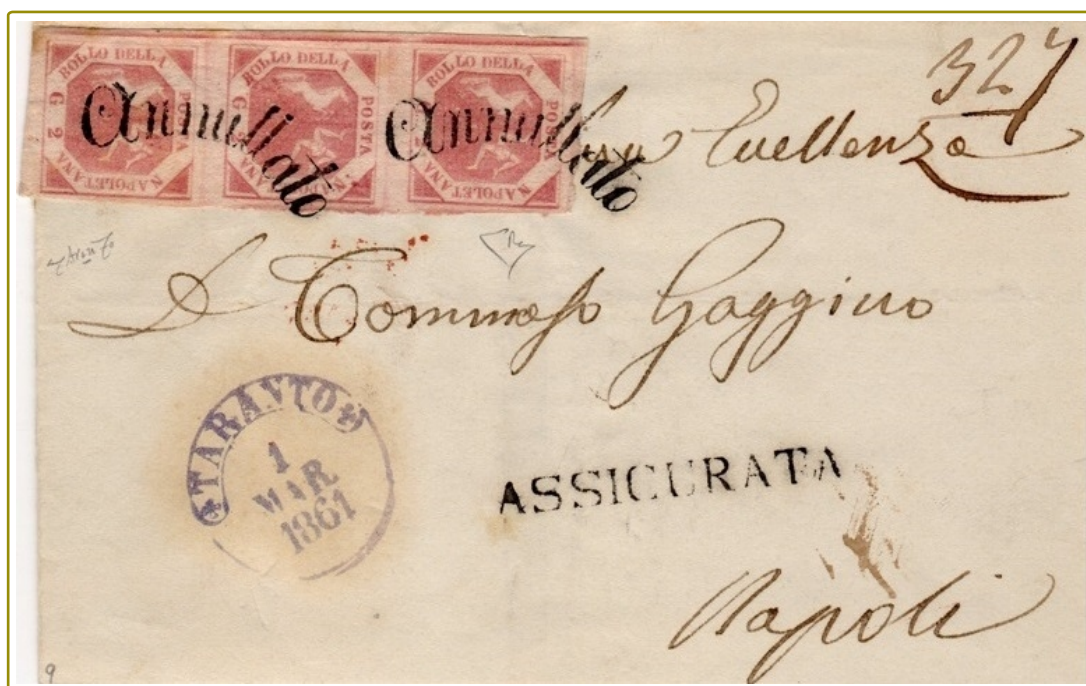 BOLLO DELLA POSTA NAPOLETANA G 2
BOLLO DELLA POSTA NAPOLETANA G
BOLLO DELLA POSTA NAPOLETANA
Annullato
Annullato
327
D Tommaso Gaggino
TARANTO
1
MAR
1861
ASSICURATA
Napoli
9